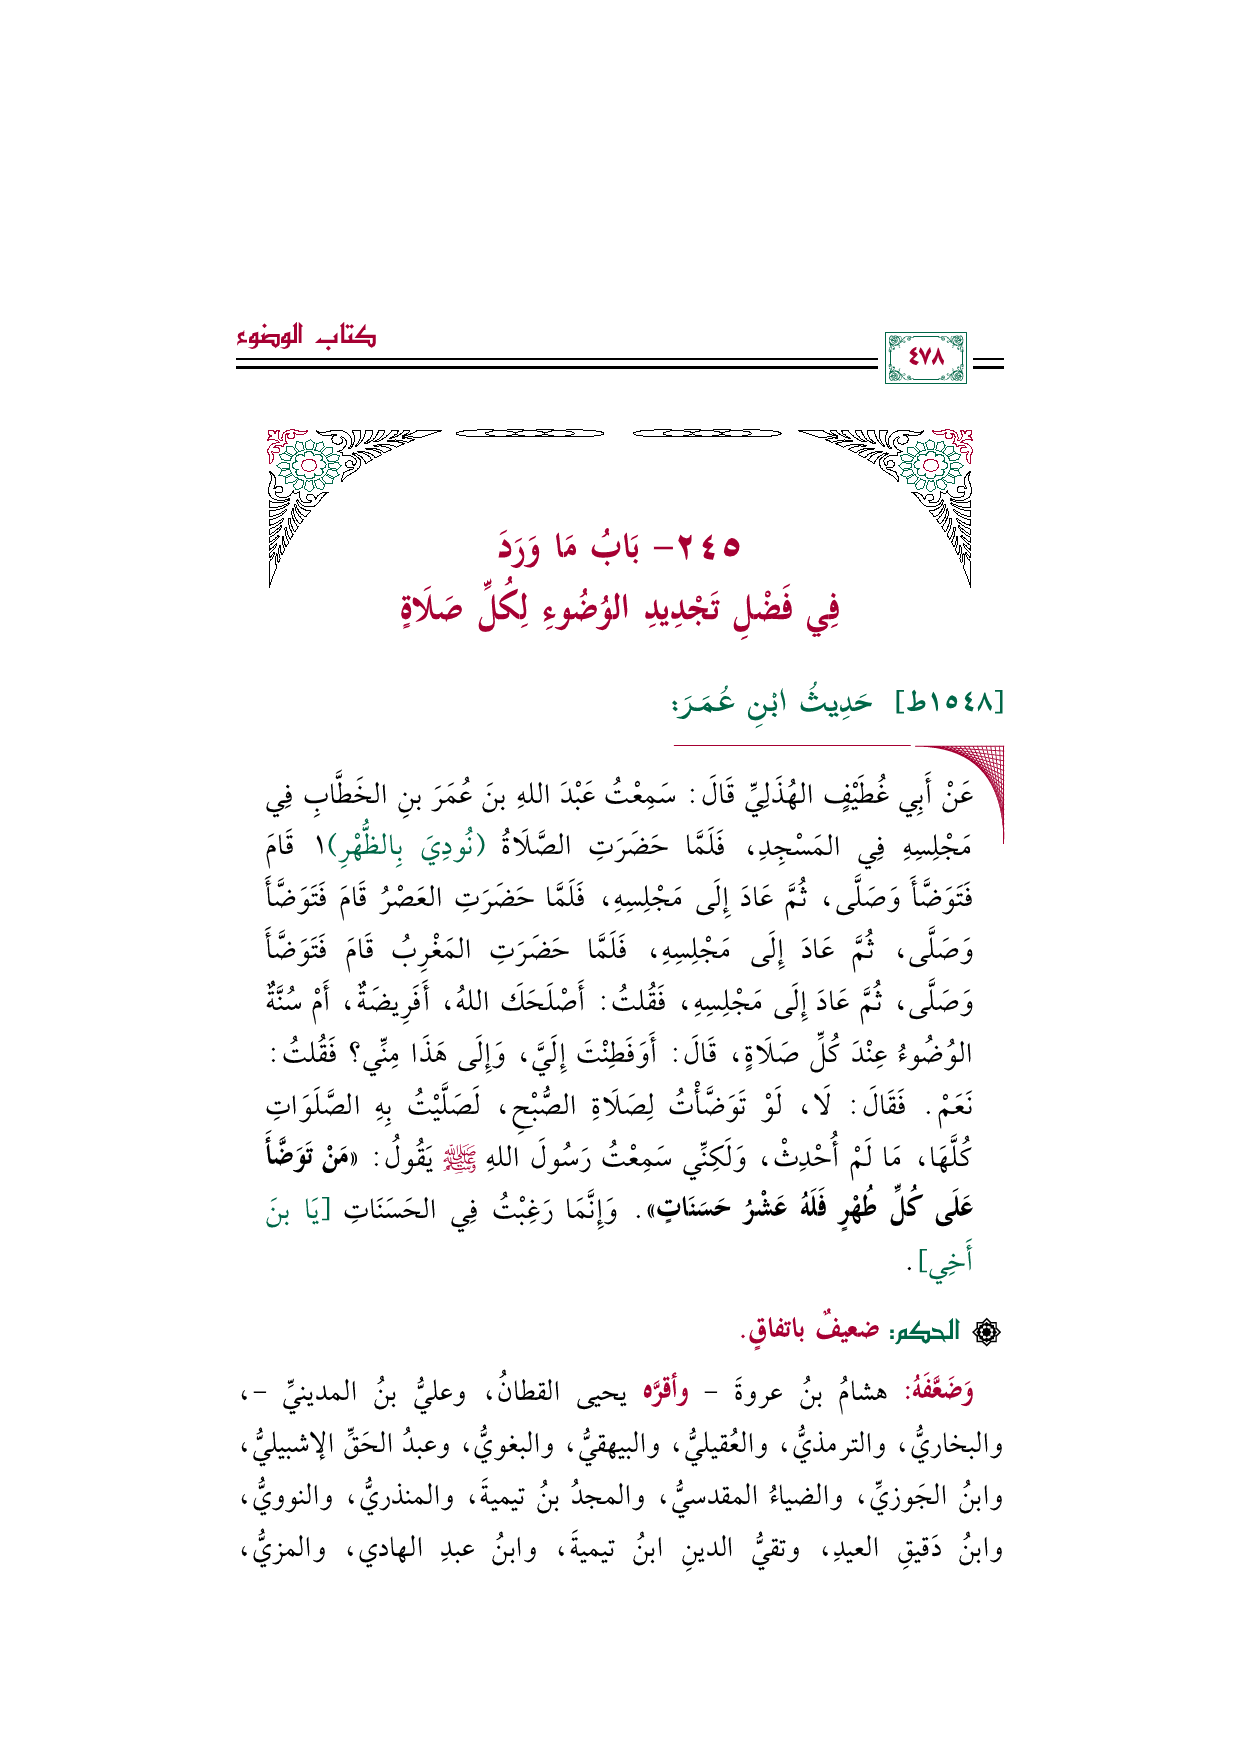 كتاب الوضوء
٤٧٨
٢٤٥- بَابُ مَا وَرَدَ
فِي فَضْلِ تَجْدِيدِ الوُضُوءِ لِكُلِّ صَلَاةٍ
[١٥٤٨ط] حَدِيثُ ابْنِ عُمَرَ:
عَنْ أَبِي غُطَيْفٍ الهُذَلِيِّ قَالَ: سَمِعْتُ عَبْدَ اللهِ بنَ عُمَرَ بنِ الخَطَّابِ فِي
مَجْلِسِهِ فِي المَسْجِدِ، فَلَمَّا حَضَرَتِ الصَّلَاةُ (نُودِيَ بِالظُّهْرِ)١ قَامَ
فَتَوَضَّأَ وَصَلَّى، ثُمَّ عَادَ إِلَى مَجْلِسِهِ، فَلَمَّا حَضَرَتِ العَصْرُ قَامَ فَتَوَضَّأَ
وَصَلَّى، ثُمَّ عَادَ إِلَى مَجْلِسِهِ، فَلَمَّا حَضَرَتِ المَغْرِبُ قَامَ فَتَوَضَّأَ
وَصَلَّى، ثُمَّ عَادَ إِلَى مَجْلِسِهِ، فَقُلتُ: أَصْلَحَكَ اللهُ، أَفَرِيضَةٌ، أَمْ سُنَّةٌ
الوُضُوءُ عِنْدَ كُلِّ صَلَاةٍ، قَالَ: أَوَفَطِنْتَ إِلَيَّ، وَإِلَى هَذَا مِنِّي؟ فَقُلتُ:
نَعَمْ. فَقَالَ: لَا، لَوْ تَوَضَّأْتُ لِصَلَاةِ الصُّبْحِ، لَصَلَّيْتُ بِهِ الصَّلَوَاتِ
كُلَّهَا، مَا لَمْ أُحْدِثْ، وَلَكِنِّي سَمِعْتُ رَسُولَ اللهِ ﷺ يَقُولُ: «مَنْ تَوَضَّأَ
عَلَى كُلِّ طُهْرٍ فَلَهُ عَشْرُ حَسَنَاتٍ». وَإِنَّمَا رَغِبْتُ فِي الحَسَنَاتِ [يَا بنَ
أَخِي].
الحكم: ضعيفٌ باتفاقٍ.
وَضَعَّفَهُ: هشامُ بنُ عروةَ - وأقرَّه يحيى القطانُ، وعليُّ بنُ المدينيِّ -،
والبخاريُّ، والترمذيُّ، والعُقيليُّ، والبيهقيُّ، والبغويُّ، وعبدُ الحَقِّ الإشبيليُّ،
وابنُ الجَوزيِّ، والضياءُ المقدسيُّ، والمجدُ بنُ تيميةَ، والمنذريُّ، والنوويُّ،
وابنُ دَقيقِ العيدِ، وتقيُّ الدينِ ابنُ تيميةَ، وابنُ عبدِ الهادي، والمزيُّ،